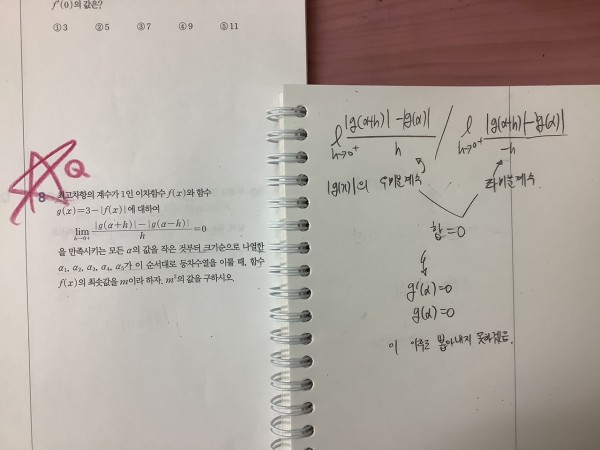 f'(0)의 값은?
①3 ②5 ③7 ④9 ⑤11
Q
8 최고차항의 계수가 1인 이차함수 f(x)와 함수
g(x)=3-|f(x)|에 대하여
lim h→0+ |g(α+h)|-|g(α-h)| / h =0
을 만족시키는 모든 α의 값을 작은 것부터 크기순으로 나열한
α₁, α₂, α₃, α₄, α₅가 이 순서대로 등차수열을 이룰 때, 함수
f(x)의 최솟값을 m이라 하자. m²의 값을 구하시오.
l h→0+ |g(α+h)|-|g(α)| / h / l h→0+ |g(α-h)|-|g(α)| / -h
|g(x)|의 우미분계수 좌미분계수
합=0
g'(α)=0
g(α)=0
이 이유를 뽑아내지 못하겠음.